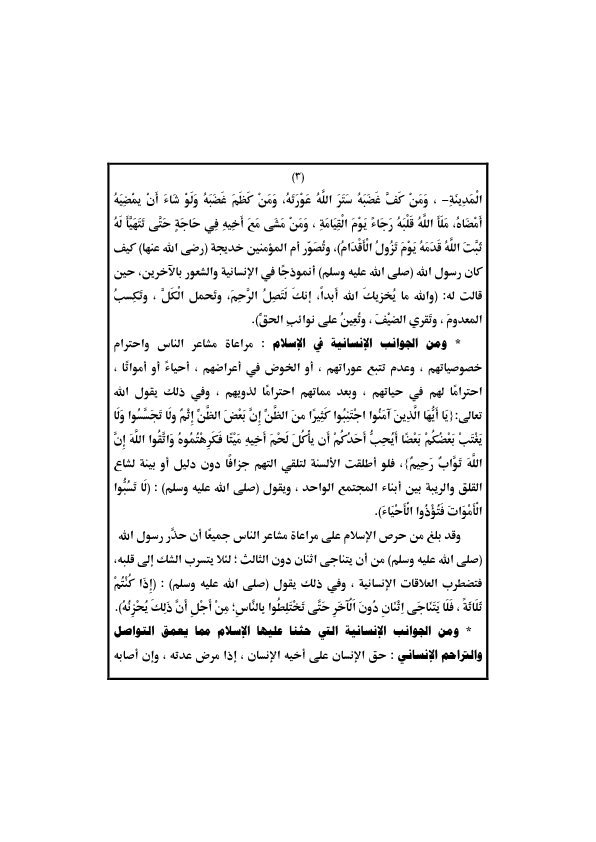 (٣)
الْمَدِينَةِ- ، وَمَنْ كَفَّ غَضَبَهُ سَتَرَ اللَّهُ عَوْرَتَهُ، وَمَنْ كَظَمَ غَضَبَهُ وَلَوْ شَاءَ أَنْ يمْضِيَهُ
أَمْضَاهُ، مَلَأَ اللَّهُ قَلْبَهُ رَجَاءً يَوْمَ الْقِيَامَةِ ، وَمَنْ مَشَى مَعَ أَخِيهِ فِي حَاجَةٍ حَتَّى تَتَهَيَّأَ لَهُ
ثَبَّتَ اللَّهُ قَدَمَهُ يَوْمَ تَزُولُ الْأَقْدَامُ)، وتُصَوّر أم المؤمنين خديجة (رضى الله عنها) كيف
كان رسول الله (صلى الله عليه وسلم) أنموذجًا في الإنسانية والشعور بالآخرين، حين
قالت له: (والله ما يُخزيكَ الله أبداً، إنكَ لَتَصِلُ الرَّحِمَ، وتَحمل الْكَلَّ ، وتَكِسبُ
المعدومَ ، وتَقري الضيْفَ ، وتُعِينُ على نوائبِ الحقِّ).
* ومن الجوانب الإنسانية في الإسلام : مراعاة مشاعر الناس واحترام
خصوصياتهم ، وعدم تتبع عوراتهم ، أو الخوض في أعراضهم ، أحياءً أو أمواتًا ،
احترامًا لهم في حياتهم ، وبعد مماتهم احترامًا لذويهم ، وفي ذلك يقول الله
تعالى:{يَا أَيُّهَا الَّذِينَ آمَنُوا اجْتَنِبُوا كَثِيرًا مِنَ الظَّنِّ إِنَّ بَعْضَ الظَّنِّ إِثْمٌ ولَا تَجَسَّسُوا وَلَا
يَغْتَبْ بَعْضُكُمْ بَعْضًا أَيُحِبُّ أَحَدُكُمْ أَن يأْكُلَ لَحْمَ أَخِيهِ مَيْتًا فَكَرِهْتُمُوهُ وَاتَّقُوا اللَّهَ إِنَّ
اللَّهَ تَوَّابٌ رَحِيمٌ}، فلو أطلقت الألسنة لتلقي التهم جزافًا دون دليل أو بينة لشاع
القلق والريبة بين أبناء المجتمع الواحد ، ويقول (صلى الله عليه وسلم) : (لَا تَسُبُّوا
الْأَمْوَاتَ فَتُؤْذُوا الْأَحْيَاءَ).
وقد بلغ من حرص الإسلام على مراعاة مشاعر الناس جميعًا أن حذَّر رسول الله
(صلى الله عليه وسلم) من أن يتناجى اثنان دون الثالث ؛ لئلا يتسرب الشك إلى قلبه،
فتضطرب العلاقات الإنسانية ، وفي ذلك يقول (صلى الله عليه وسلم) : (إِذَا كُنْتُمْ
ثَلَاثَةً ، فَلَا يَتَنَاجَى اثْنَانِ دُونَ الْآخَرِ حَتَّى تَخْتَلِطُوا بِالنَّاسِ؛ مِنْ أَجْلِ أَنَّ ذَلِكَ يُحْزِنُهُ).
* ومن الجوانب الإنسانية التي حثنا عليها الإسلام مما يعمق التواصل
والتراحم الإنساني : حق الإنسان على أخيه الإنسان ، إذا مرض عدته ، وإن أصابه